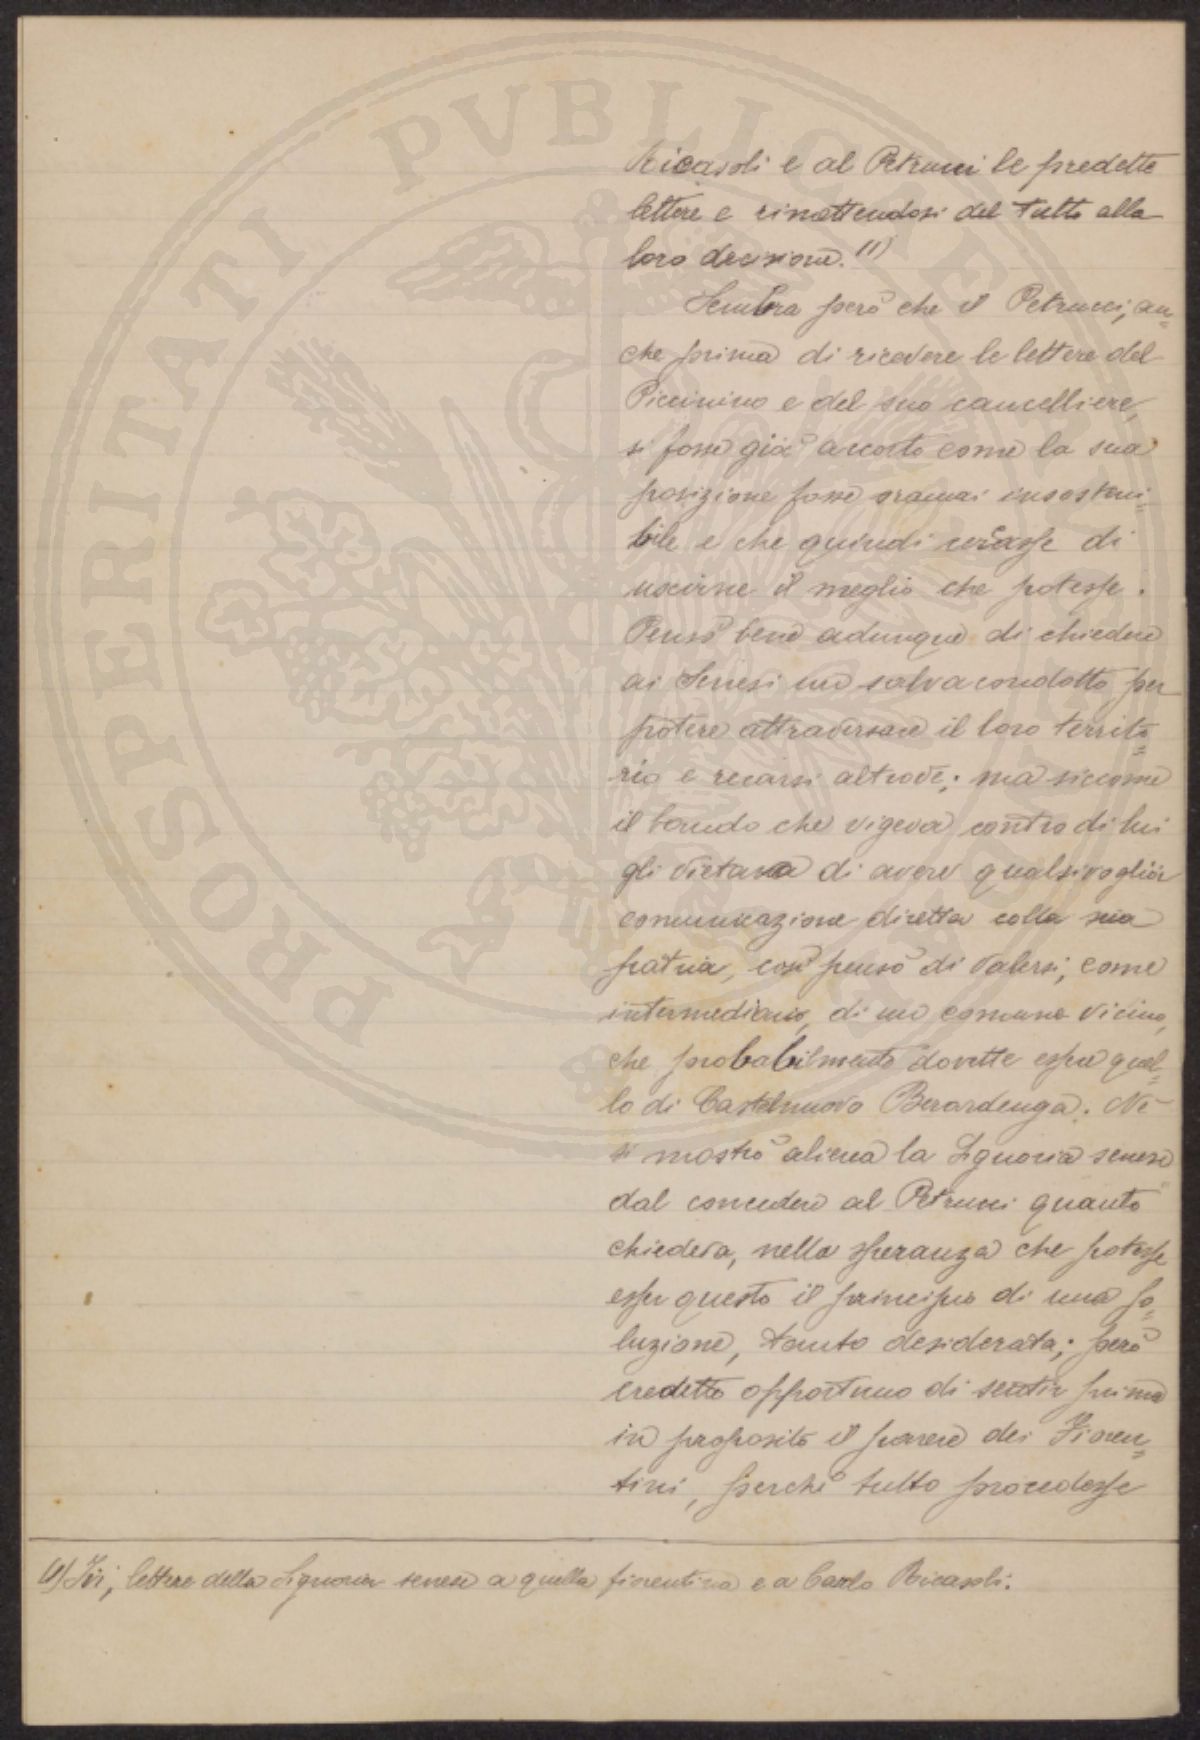 Ricasoli e al Petrucci le predette
lettere e rimettendosi del tutto alla
loro decisione. (1)
Sembra però che il Petrucci, an=
che prima di ricevere le lettere del
Piccinino e del suo cancelliere,
si fosse già accorto come la sua
posizione fosse oramai insosteni=
bile e che quindi cercasse di
uscirne il meglio che potesse.
Pensò bene adunque di chiedere
ai Senesi un salvacondotto per
potere attraversare il loro territo=
rio e recarsi altrove; ma siccome
il bando che vigeva contro di lui
gli vietava di avere qualsivoglia
comunicazione diretta colla sua
patria, così pensò di valersi, come
intermediario, di un comune vicino,
che probabilmente dovette essere quel=
lo di Castelnuovo Berardenga. Nè
si mostrò aliena la Signoria senese
dal concedere al Petrucci quanto
chiedeva, nella speranza che potesse
esser questo il principio di una so=
luzione, tanto desiderata; però
credette opportuno di sentir prima
in proposito il parere dei Fioren=
tini, perchè tutto procedesse
(1) Ivi, lettere della Signoria senese a quella fiorentina e a Carlo Ricasoli.
PROSPERITATI PVBLICAE